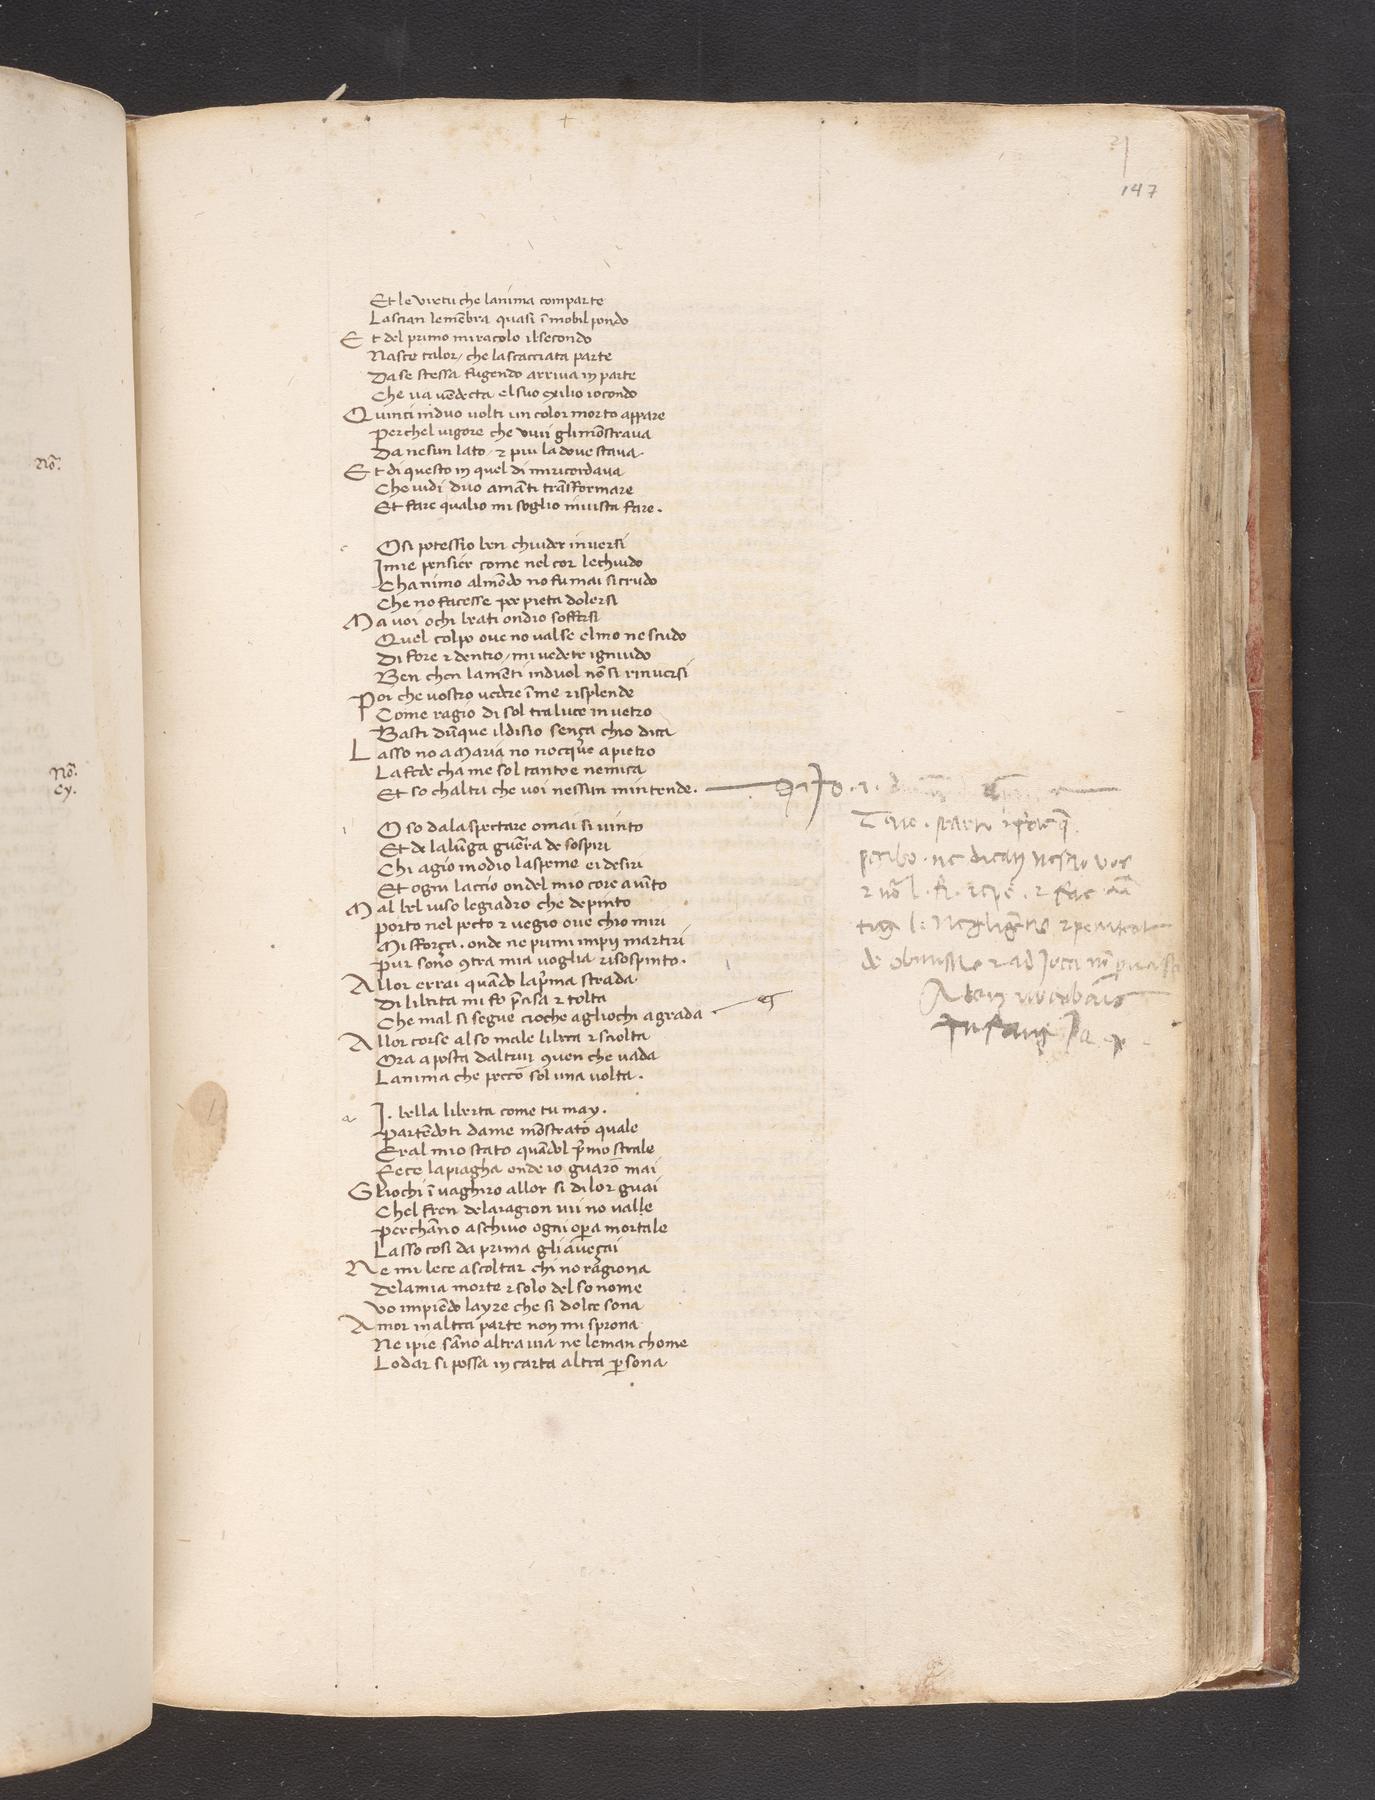 21
147
Et le virtu che lanima comparte
Lascian le mēbra quasi īmobil pondo
Et del primo miracolo il secondo
Nasce talor / che la scacciata parte
Da se stessa fugendo arriva in parte
Che va vēdecta el suo exilio iocondo
Quinci in duo volti un color morto appare
Perchel vigore che vivi gli mōstrava
Da nesun lato / ⁊ piu la dove stava.
Et di questo in quel di mi ricordava
Che vidi duo amāti trāsformare
Et fare qualio mi soglio in vista fare.
O si potessio ben chiuder in versi
I mie pensier come nel cor le chiudo
Chanimo al mōdo no fu mai si crudo
Che no facesse per pieta dolersi
Ma voi ochi beati ondio soffersi
Quel colpo ove no valse elmo ne scudo
Di fore ⁊ dentro / mi vedete igniudo
Ben chen lamēti in duol nō si rinversi
Poi che vostro vedere ī me risplende
Come ragio di sol traluce in vetro
Basti dūque il disio sença chio dica
Lasso no a Maria no nocque a pietro
La fede cha me sol tanto e nemica
Et so chaltri che voi nessun mintende.
O so dalaspectare omai si vinto
Et de la lūga guerra de sospiri
Chi agio in odio la speme ei desiri
Et ogni laccio ondel mio core avīto
Mal bel viso legiadro che depinto
Porto nel pecto ⁊ vegio ove chio miri
Mi sfforça. onde ne pumi impij martiri
Pur sono ꝯtra mia voglia risospinto.
Allor errai quādo la pīma strada
Di libīta mi fo p̄cisa ⁊ tolta
Che mal si segue cioche agliochi agrada
Allor corse al so male libera ⁊ sciolta
Ora a posta daltrui ꝯven che vada
Lanima che pecco sol una volta.
I. bella liberta come tu may.
Partēdoti da me mōstrato quale
Eral mio stato quādol p̄mo strale
Fece la piagha onde io guaro mai
Gliochi īvaghiro allor si di lor guai
Chel fren dela ragion ivi no valle
Perchāno a schivo ogni oꝑa mortale
Lasso cosi da prima gli aveçai
Ne mi lece ascoltar chi no ragiona
Dela mia morte ⁊ solo del so nome
Vo impiēdo layre che si dolce sona
Amor in altra parte non mi sprona
Ne i pie sāno altra via ne le man chome
Lodar si possa in carta altra ꝑsona
Nō.
Nō.
cy.